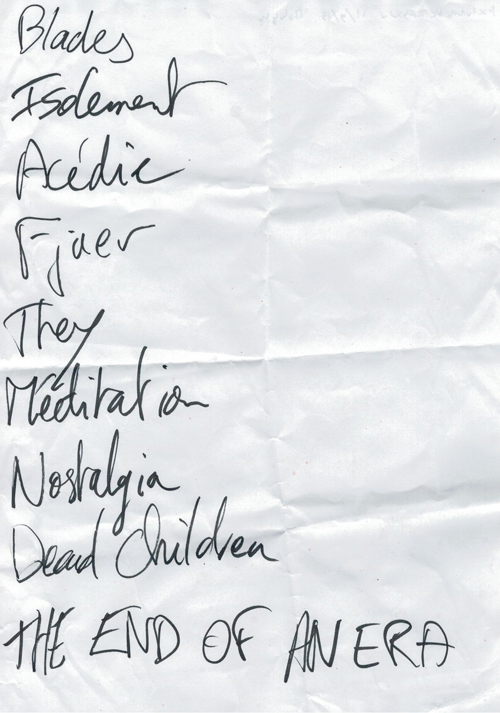 Blades
Isolement
Acédie
Fjaer
They
Méditation
Nostalgia
Dead Children
THE END OF AN ERA